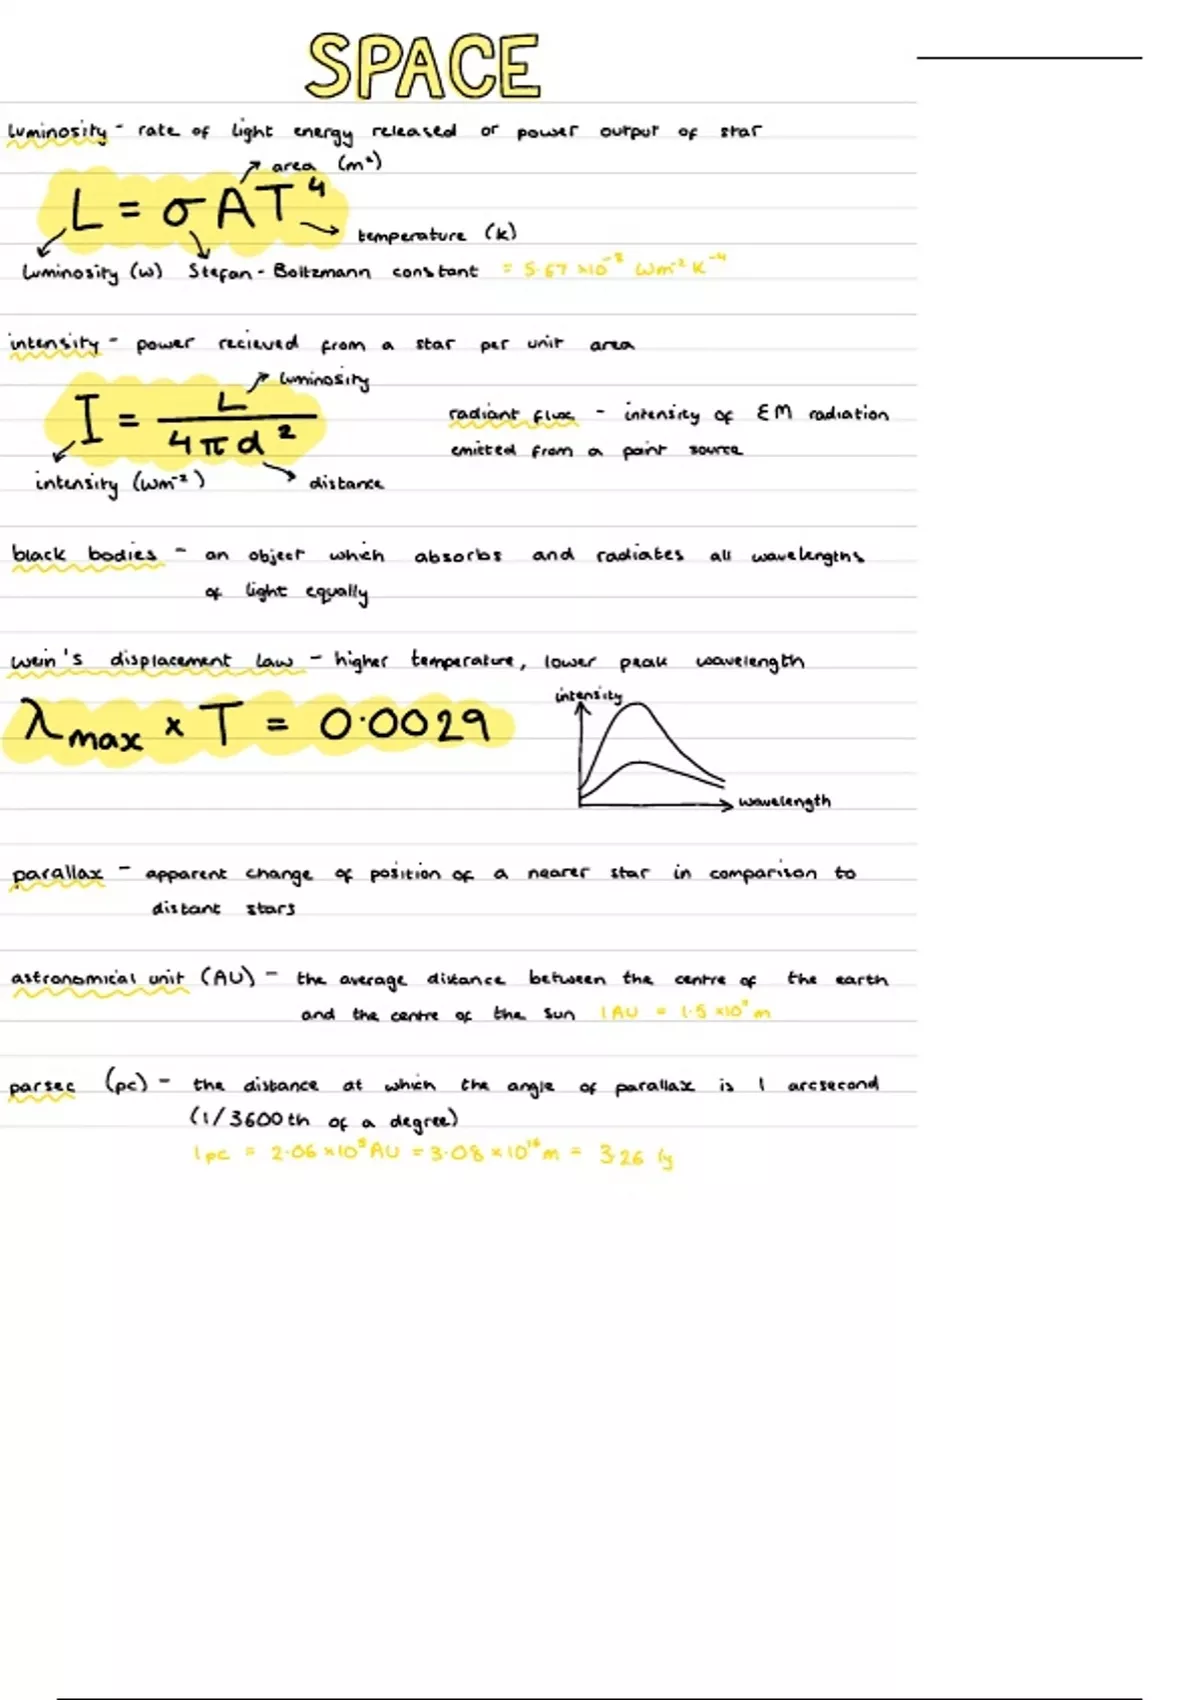 SPACE
luminosity - rate of light energy released or power output of star
area (m²)
L = σAT⁴
temperature (k)
luminosity (w) Stefan-Boltzmann constant = 5.67 ×10⁻⁸ Wm⁻² K⁻⁴
intensity - power recieved from a star per unit area
luminosity
I = L / 4πd²
radiant flux - intensity of EM radiation
emitted from a point source
intensity (wm⁻²) distance
black bodies - an object which absorbs and radiates all wavelengths
of light equally
wein's displacement law - higher temperature, lower peak wavelength
λmax × T = 0.0029
intensity
wavelength
parallax - apparent change of position of a nearer star in comparison to
distant stars
astronomical unit (AU) - the average distance between the centre of the earth
and the centre of the sun 1AU = 1.5 ×10 m
parsec (pc) - the distance at which the angle of parallax is 1 arcsecond
(1/3600th of a degree)
1pc = 2.06 ×10⁵ AU = 3.08 ×10¹⁶ m = 3.26 ly